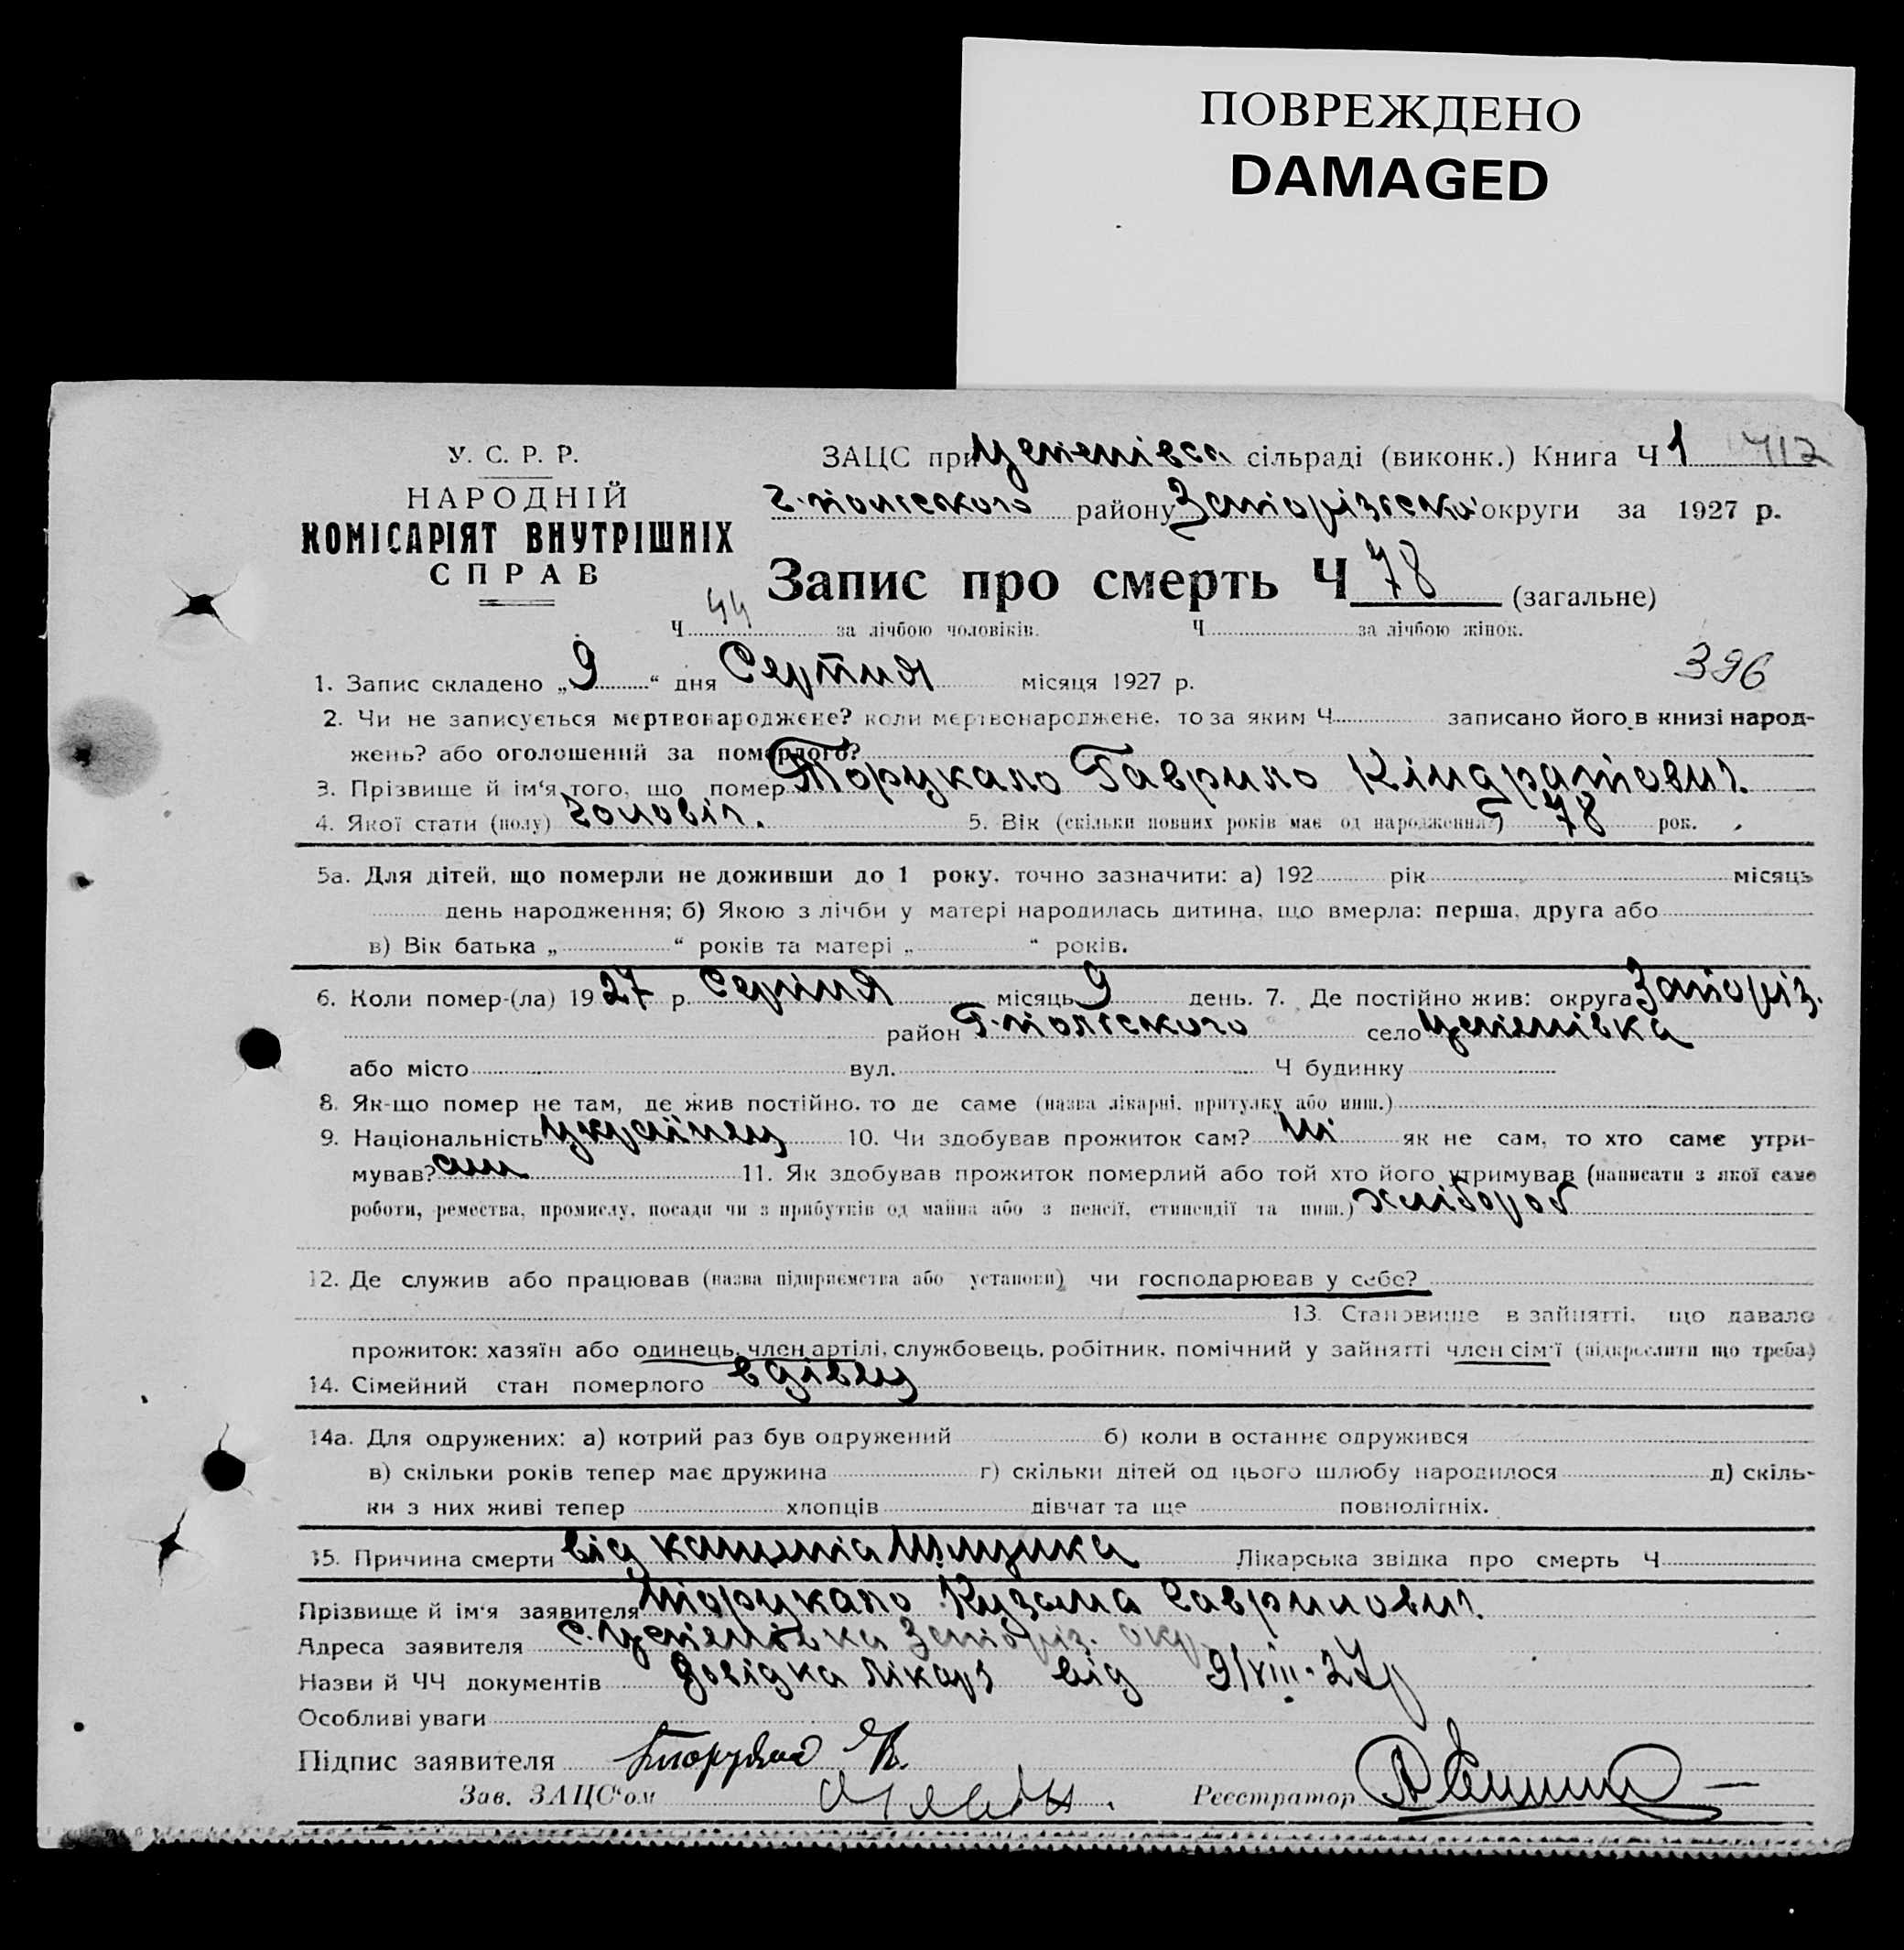 ПОВРЕЖДЕНО
DAMAGED
У. С. Р. Р.
НАРОДНІЙ
КОМІСАРІЯТ ВНУТРІШНІХ
СПРАВ
ЗАЦС при Успенівса сільраді (виконк.) Книга Ч 1 412
Г-польского району Запорізсько округи за 1927 р.
Запис про смерть Ч 78 (загальне)
Ч 44 за лічбою чоловіків. Ч за лічбою жінок.
396
1. Запис складено „ 9 “ дня Серпня місяця 1927 р.
2. Чи не записується мертвонароджене? коли мертвонароджене, то за яким Ч записано його в книзі народ-
жень? або оголошений за померлого?
3. Прізвище й ім‘я того, що помер Торукало Гаврило Кіндратович.
4. Якої стати (полу) чоловіч. 5. Вік (скільки повних років має од народження?) 78 рок.
5а. Для дітей, що померли не доживши до 1 року, точно зазначити: а) 192 рік місяць
день народження; б) Якою з лічби у матері народилась дитина, що вмерла: перша, друга або
в) Вік батька „ “ років та матері „ “ років.
6. Коли помер-(ла) 19 27 р. Серпня місяць 9 день. 7. Де постійно жив: округа Запоріз.
район Г-польського село Успенівка
або місто вул. Ч будинку
8. Як-що помер не там, де жив постійно, то де саме (назва лікарні, притулку або инш.)
9. Національність українец 10. Чи здобував прожиток сам? Ні як не сам, то хто саме утри-
мував? син 11. Як здобував прожиток померлий або той хто його утримував (написати з якої саме
роботи, ремества, промислу, посади чи з прибутків од майна або з пенсії, стипендії та инш.) хлібороб
12. Де служив або працював (назва підприємства або установи) чи господарював у себе?
13. Становище в зайнятті, що давало
прожиток: хазяїн або одинець, член артілі, службовець, робітник, помічний у зайнятті член сім‘ї (підкреслити що треба)
14. Сімейний стан померлого вдівец
14а. Для одружених: а) котрий раз був одружений б) коли в останнє одружився
в) скільки років тепер має дружина г) скільки дітей од цього шлюбу народилося д) скіль-
ки з них живі тепер хлопців дівчат та ще повнолітніх.
15. Причина смерти від Лікарська звідка про смерть Ч
Прізвище й ім‘я заявителя Торукало Кузьма Гаврилович.
Адреса заявителя с. Успенівка Запоріз. окр.
Назви й ЧЧ документів довідка лікаря від 9/VIII-27р
Особливі уваги
Підпис заявителя К.
Зав. ЗАЦС‘ом Реєстратор